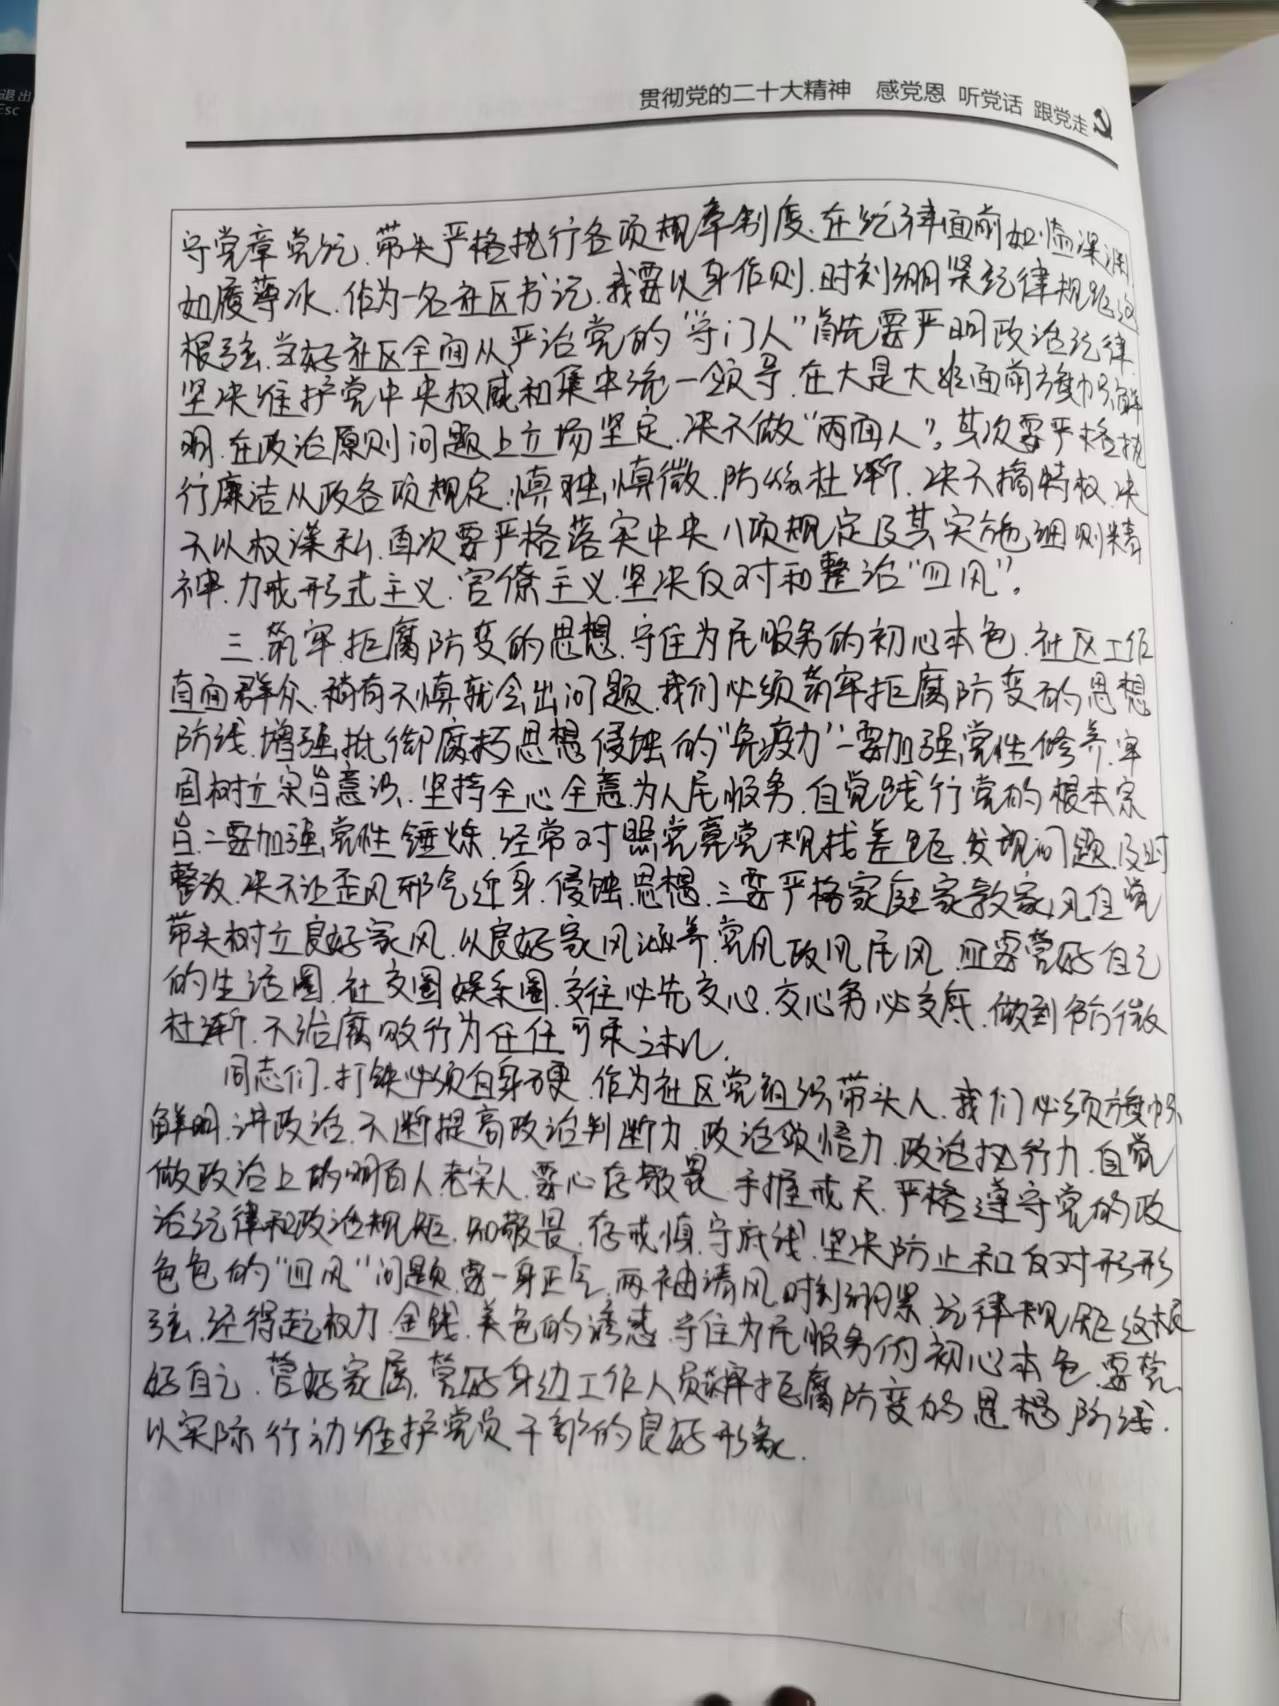 退出
Esc
贯彻党的二十大精神 感党恩 听党话 跟党走
守党章党纪、带头严格执行各项规章制度、在纪律面前如临深渊
如履薄冰、作为一名社区书记、我要以身作则、时刻绷紧纪律规矩这
根弦、当好社区全面从严治党的“守门人”首先要严明政治纪律、
坚决维护党中央权威和集中统一领导、在大是大非面前旗帜鲜
明、在政治原则问题上立场坚定、决不做“两面人”。其次要严格执
行廉洁从政各项规定、慎独、慎微、防微杜渐、决不搞特权、决
不以权谋私、再次要严格落实中央八项规定及其实施细则精
神、力戒形式主义、官僚主义、坚决反对和整治“四风”。
三、筑牢拒腐防变的思想、守住为民服务的初心本色、社区工作
直面群众、稍有不慎就会出问题、我们必须筑牢拒腐防变的思想
防线、增强抵御腐朽思想侵蚀的“免疫力”一要加强党性修养、牢
固树立宗旨意识、坚持全心全意为人民服务、自觉践行党的根本宗
旨、二要加强党性锤炼、经常对照党章党规找差距、发现问题、及时
整改、决不让歪风邪气近身、侵蚀思想、三要严格家庭家教家风、自觉
带头树立良好家风、以良好家风涵养党风政风民风、四要管好自己
的生活圈、社交圈娱乐圈、交往必先交心、交心务必交底、做到防微
杜渐、不给腐败行为任任可乘之机、
同志们、打铁必须自身硬、作为社区党组织带头人、我们必须旗帜
鲜明、讲政治、不断提高政治判断力、政治领悟力、政治执行力、自觉
做政治上的明白人、老实人、要心存敬畏、手握戒尺、严格遵守党的政
治纪律和政治规矩、知敬畏、存戒惧、守底线、坚决防止和反对形形
色色的“四风”问题、要一身正气、两袖清风、时刻绷紧纪律规矩这根
弦、经得起权力、金钱、美色的诱惑、守住为民服务的初心本色、要管
好自己、管好家属、管好身边工作人员、筑牢拒腐防变的思想防线、
以实际行动维护党员干部的良好形象、